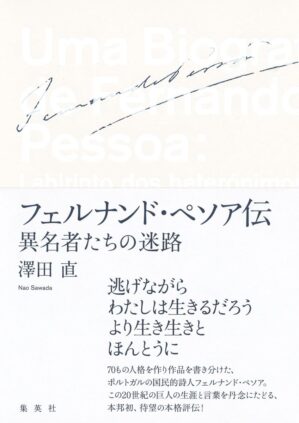 Uma Biogra
de Fernando
Pessoa:
Labirinto dos heterónimos
Fernando Pessoa
フェルナンド・ペソア伝
異名者たちの迷路
澤田 直
Nao Sawada
逃げながら
わたしは生きるだろう
より生き生きと
ほんとうに
70もの人格を作り作品を書き分けた、
ポルトガルの国民的詩人フェルナンド・ペソア。
この20世紀の巨人の生涯と言葉を丹念にたどる、
本邦初、待望の本格評伝!
集英社